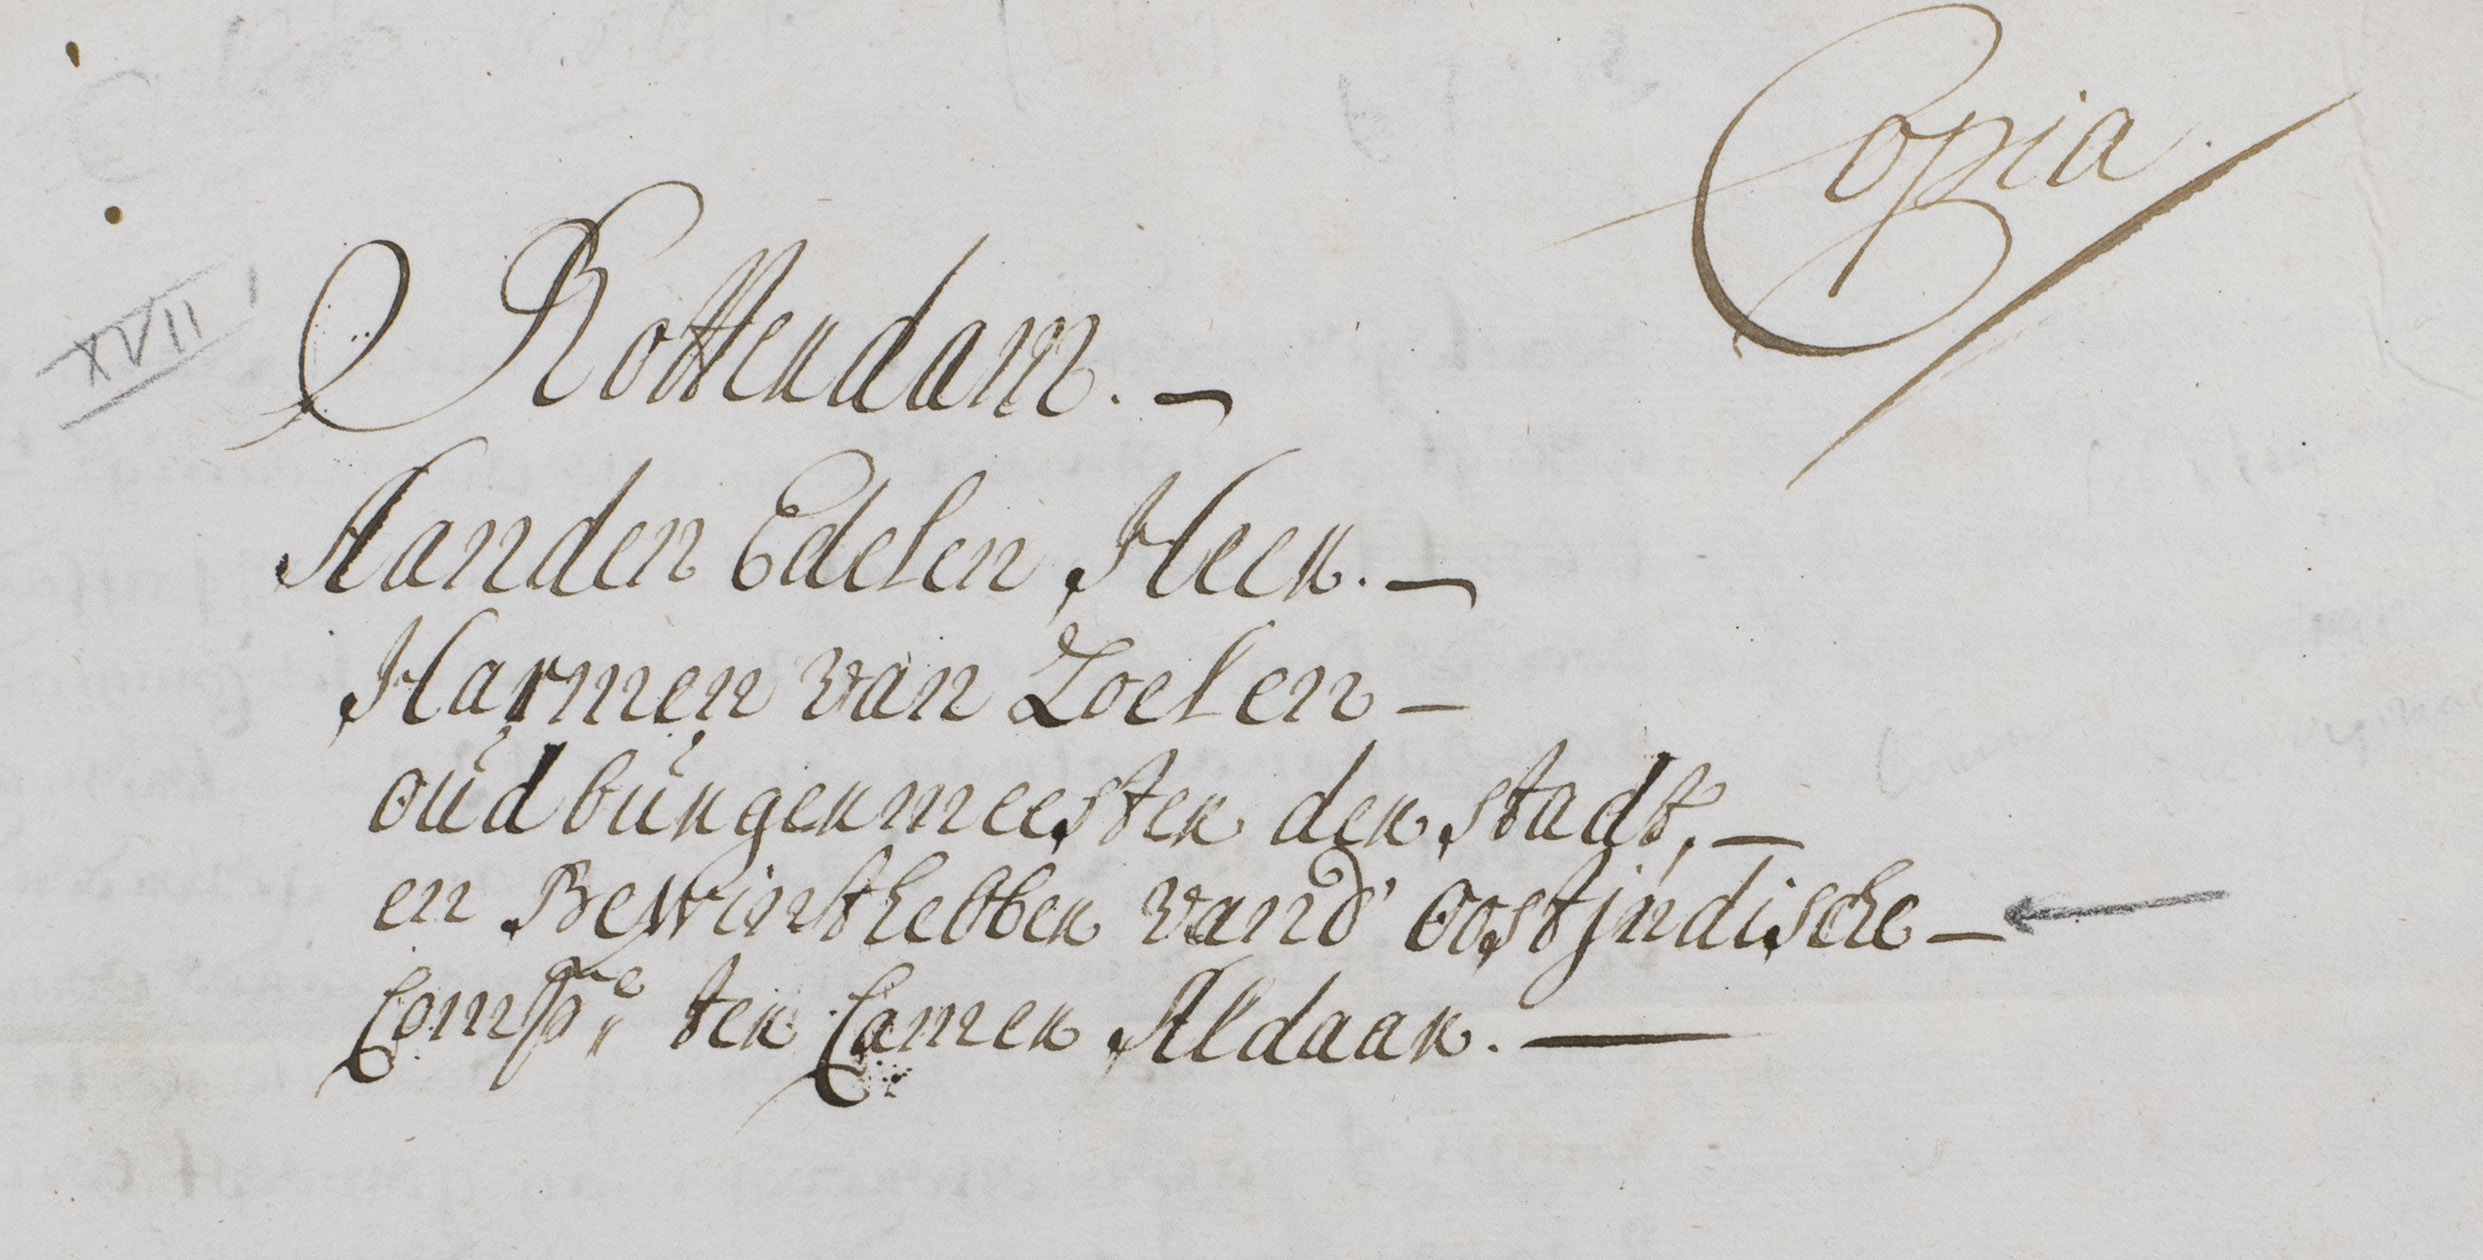 Copia
XVII
Rotterdam. —
Aanden Edelen Heer. —
Harmen van Zoelen —
oud burgermeester der stadt, —
en Bewinthebber vand' oostjndische —
Compe. ter Camer Aldaar. —